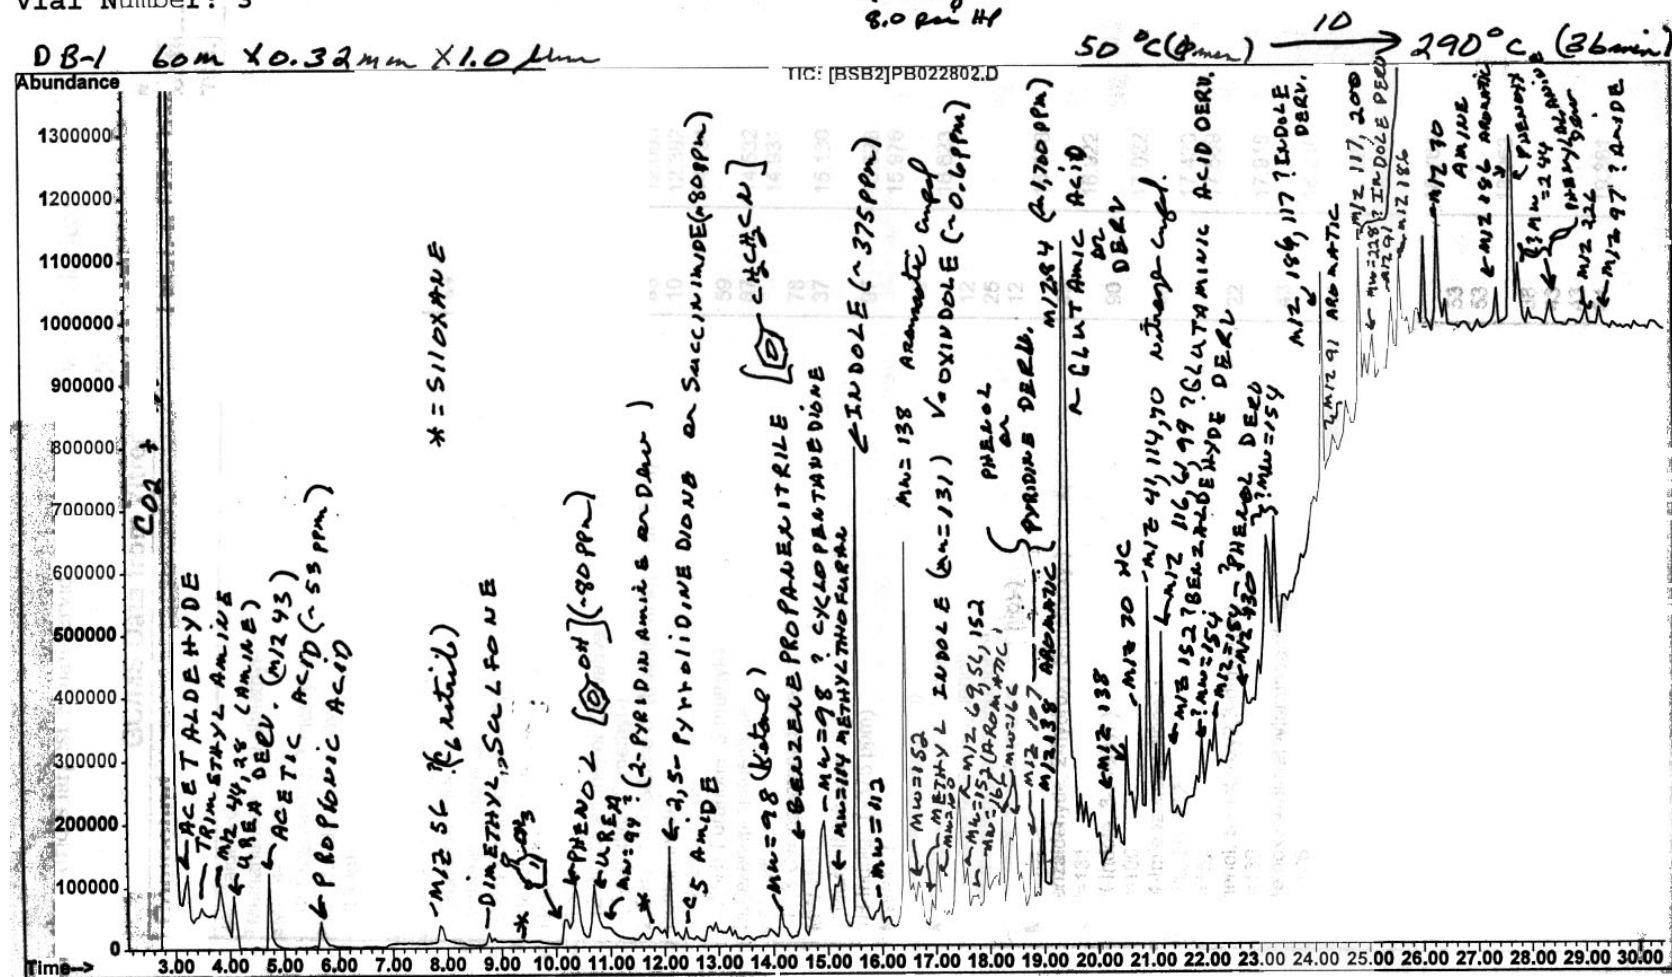 Vial Number: 3
8.0 psi HP
DB-1 60m X0.32mm X1.0 µm
50 °C( min) 10 290°C (36min)
Abundance
TIC: [BSB2]PB022802.D
1300000
1200000
1100000
1000000
900000
800000
700000
600000
500000
400000
300000
200000
100000
0
CO2 +
ACETALDEHYDE
TRIMETHYL AMINE
M/Z 44,28 (AMINE)
UREA DERV. (M/Z 43)
ACETIC ACID (~53 PPM)
PROPIONIC ACID
* = SILOXANE
M/Z 56 ?(C6 nitrile)
DIMETHYL SULFONE
*
CH3
PHENOL [OH](~80PPM)
UREA
MW=94 ? (2-PYRIDINAMINE or Derv)
*
2,5-PYrrolIDINE DIONE or SUCCINIMIDE(~80PPM)
C5 AMIDE
MW=98 (Ketone)
BENZENE PROPANENITRILE
[CH2CH2CN]
MW=98 ? CYCLOPENTANEDIONE
MW=114 METHYLTHIOFURAN
INDOLE (~375PPM)
MW=112
MW=138 Aromatic cmpd
MW=152
METHYL INDOLE (MW=131)
OXINDOLE (~0.6PPM)
M/Z 69,56,152
MW=152 (AROMATIC)
MW=166
M/Z 107
PHENOL or PYRIDINE DERV.
M/Z 138 AROMATIC
M/Z 84 (~1,700PPM)
GLUTAMIC ACID OR DERV
M/Z 138
M/Z 70 HC
M/Z 41,114,70 nitrogen cmpd.
M/Z 116,61,99 ? GLUTAMINIC ACID DERV.
M/Z 152 ? BENZALDEHYDE DERV
? MW=154
M/Z=154 - PHENOL DERV
M/Z 30
? MW=154
M/Z 186,117 ? INDOLE DERV.
M/Z 91 AROMATIC
M/Z 117, 200
MW=228 ? INDOLE DERV
M/Z 91
M/Z 186
M/Z 30 AMINE
M/Z 186 AROMATIC
(? MW=244
M/Z 226
M/Z 97 ? AMIDE
Time--> 3.00 4.00 5.00 6.00 7.00 8.00 9.00 10.00 11.00 12.00 13.00 14.00 15.00 16.00 17.00 18.00 19.00 20.00 21.00 22.00 23.00 24.00 25.00 26.00 27.00 28.00 29.00 30.00